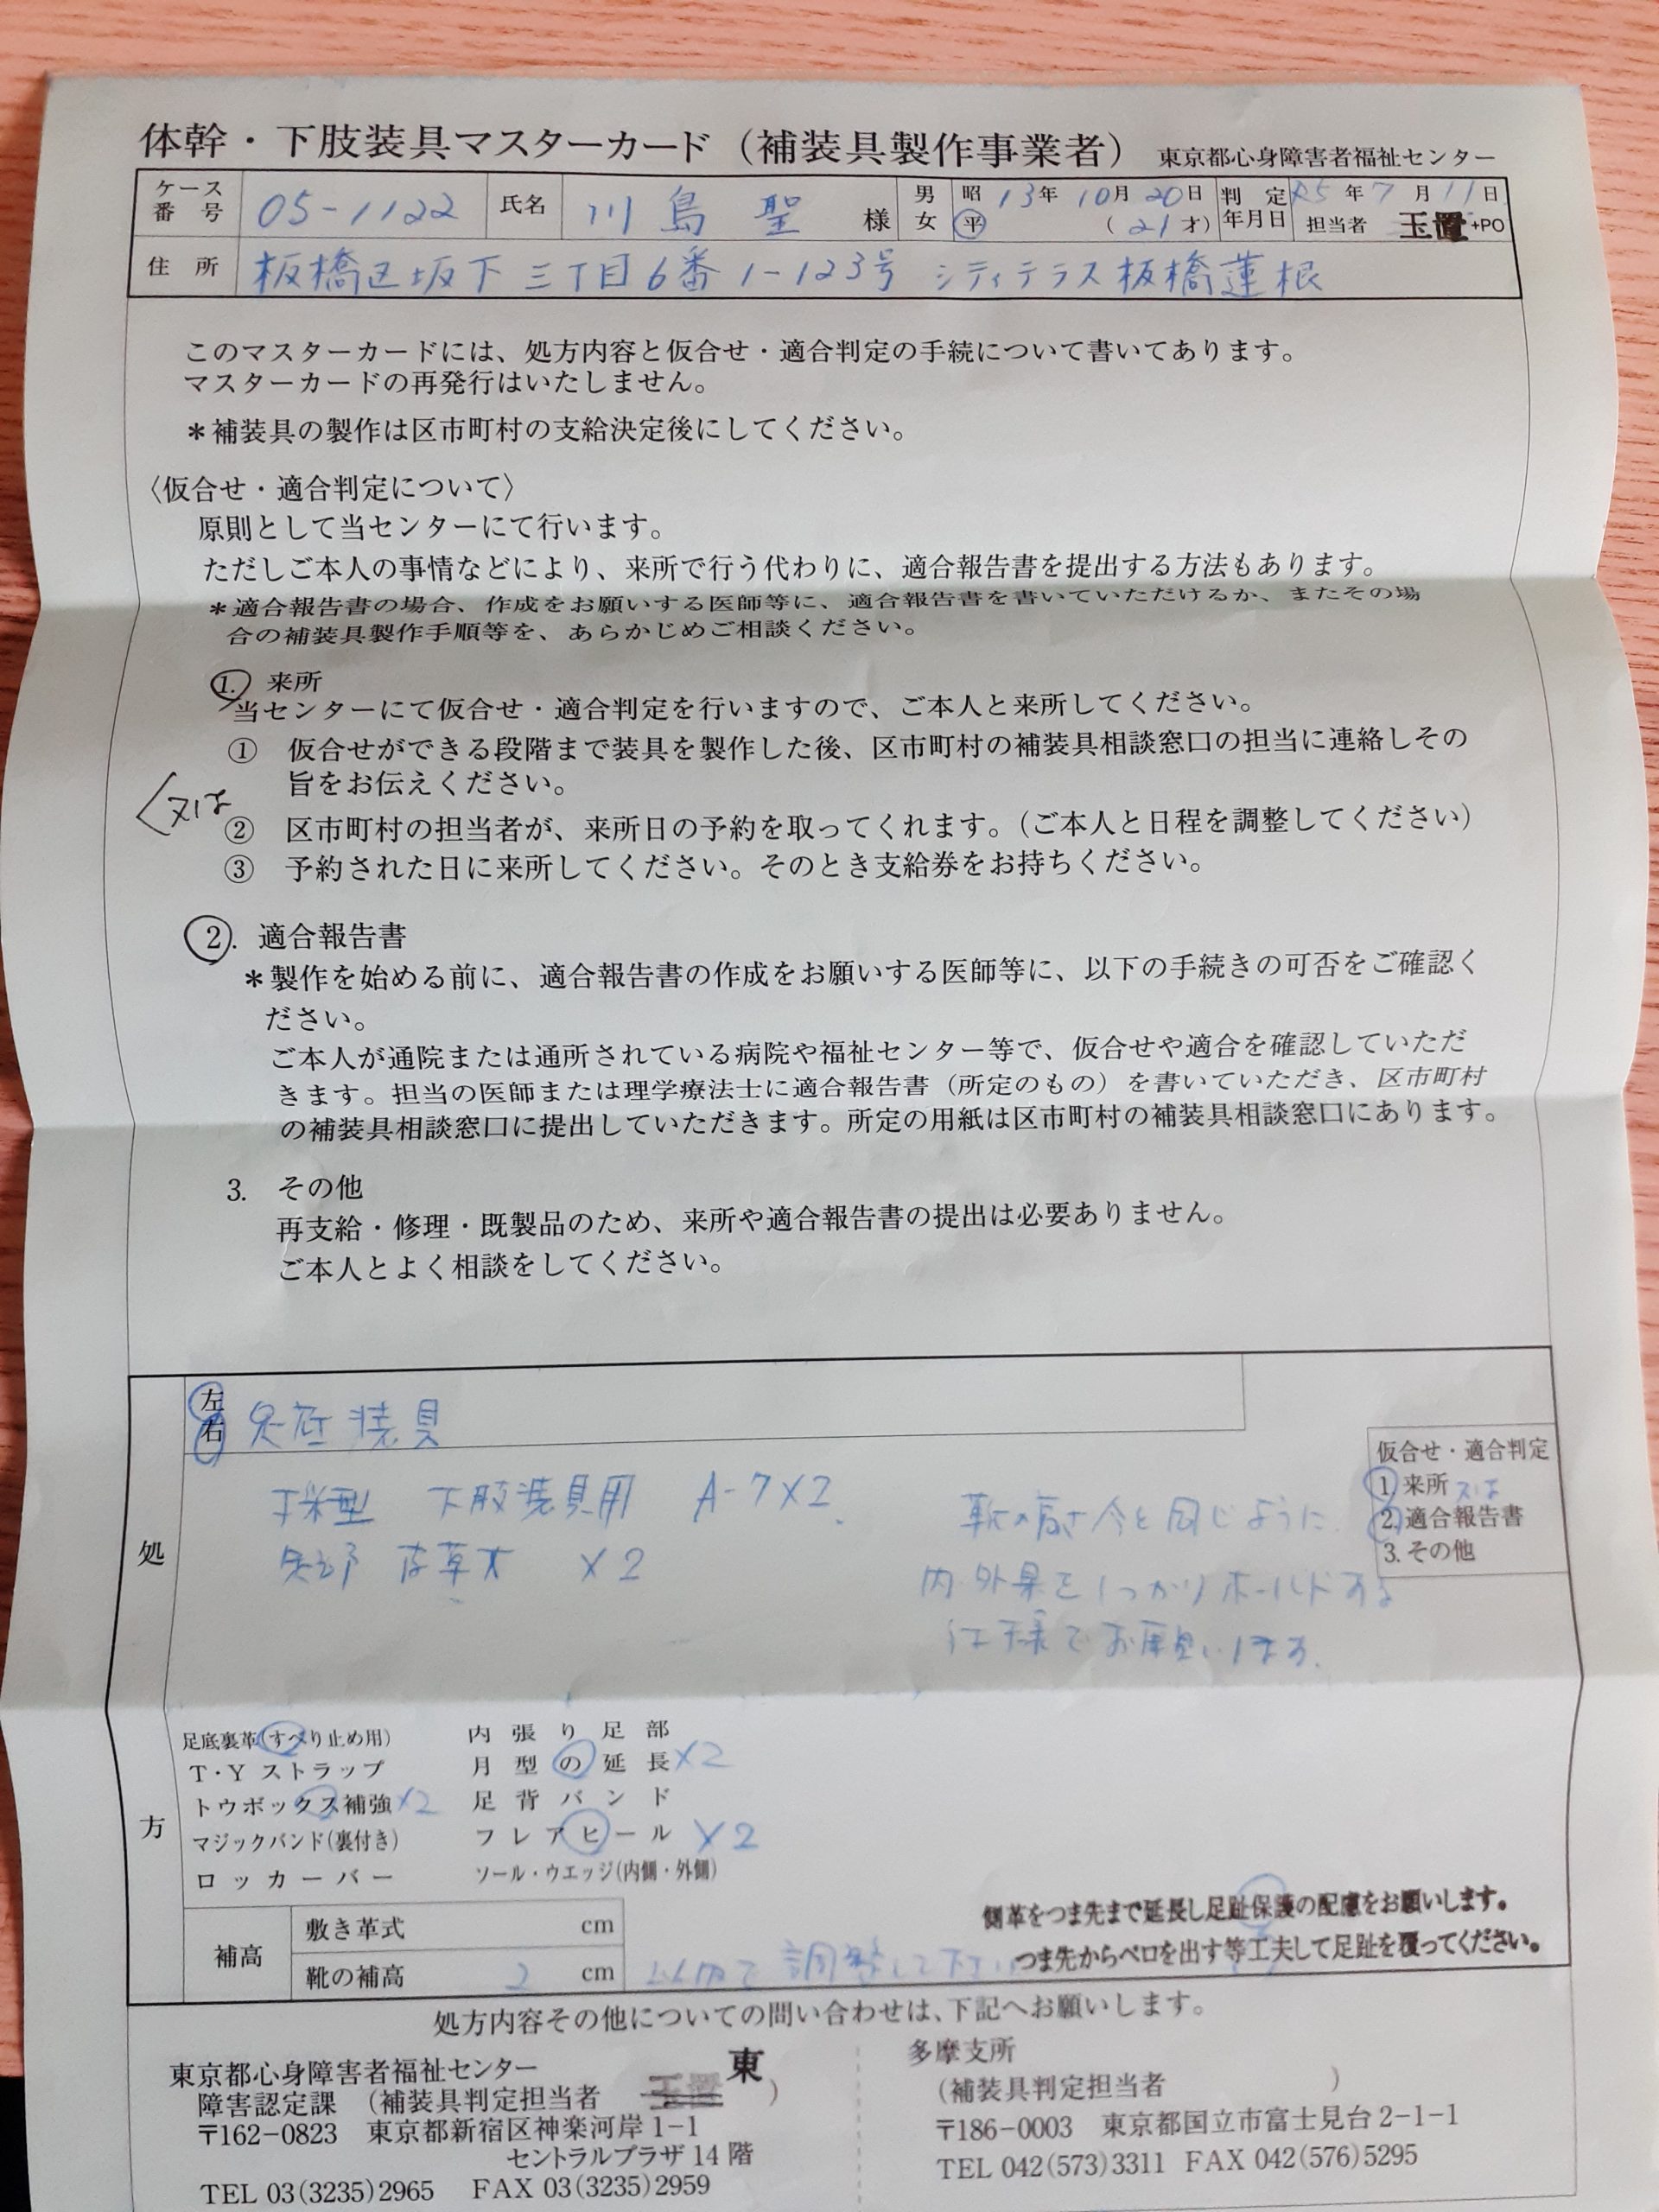 体幹・下肢装具マスターカード（補装具製作事業者） 東京都心身障害者福祉センター
ケース番号 05-1122 氏名 川島 聖 様 男 女 昭 平 13年 10月 20日 (21才) 判定年月日 R5年 7月 11日 担当者 玉置 +PO
住所 板橋区坂下三丁目6番1-123号 シティテラス板橋蓮根
このマスターカードには、処方内容と仮合せ・適合判定の手続について書いてあります。
マスターカードの再発行はいたしません。
＊補装具の製作は区市町村の支給決定後にしてください。
〈仮合せ・適合判定について〉
原則として当センターにて行います。
ただしご本人の事情などにより、来所で行う代わりに、適合報告書を提出する方法もあります。
＊適合報告書の場合、作成をお願いする医師等に、適合報告書を書いていただけるか、またその場
合の補装具製作手順等を、あらかじめご相談ください。
1. 来所
当センターにて仮合せ・適合判定を行いますので、ご本人と来所してください。
① 仮合せができる段階まで装具を製作した後、区市町村の補装具相談窓口の担当に連絡しその
旨をお伝えください。
又は
② 区市町村の担当者が、来所日の予約を取ってくれます。（ご本人と日程を調整してください）
③ 予約された日に来所してください。そのとき支給券をお持ちください。
2. 適合報告書
＊製作を始める前に、適合報告書の作成をお願いする医師等に、以下の手続きの可否をご確認く
ださい。
ご本人が通院または通所されている病院や福祉センター等で、仮合せや適合を確認していただ
きます。担当の医師または理学療法士に適合報告書（所定のもの）を書いていただき、区市町村
の補装具相談窓口に提出していただきます。所定の用紙は区市町村の補装具相談窓口にあります。
3. その他
再支給・修理・既製品のため、来所や適合報告書の提出は必要ありません。
ご本人とよく相談をしてください。
処方
左
右 足底装具
採型 下肢装具用 A-7×2
足部 皮革大 ×2
靴の高さ今と同じように
内・外果をしっかりホールドする
仕様でお願いします。
仮合せ・適合判定
1. 来所 又は
2. 適合報告書
3. その他
足底裏革(すべり止め用) 内張り足部
T・Yストラップ 月型の延長 ×2
トウボックス補強 ×2 足背バンド
マジックバンド(裏付き) フレアヒール ×2
ロッカーバー ソール・ウエッジ(内側・外側)
側革をつま先まで延長し足趾保護の配慮をお願いします。
つま先からベロを出す等工夫して足趾を覆ってください。
補高 敷き革式 cm
靴の補高 2 cm 以内で調整して下さい
処方内容その他についての問い合わせは、下記へお願いします。
東京都心身障害者福祉センター 東
障害認定課 （補装具判定担当者 玉置 ）
〒162-0823 東京都新宿区神楽河岸1-1
セントラルプラザ14階
TEL 03(3235)2965 FAX 03(3235)2959
多摩支所
（補装具判定担当者 ）
〒186-0003 東京都国立市富士見台2-1-1
TEL 042(573)3311 FAX 042(576)5295